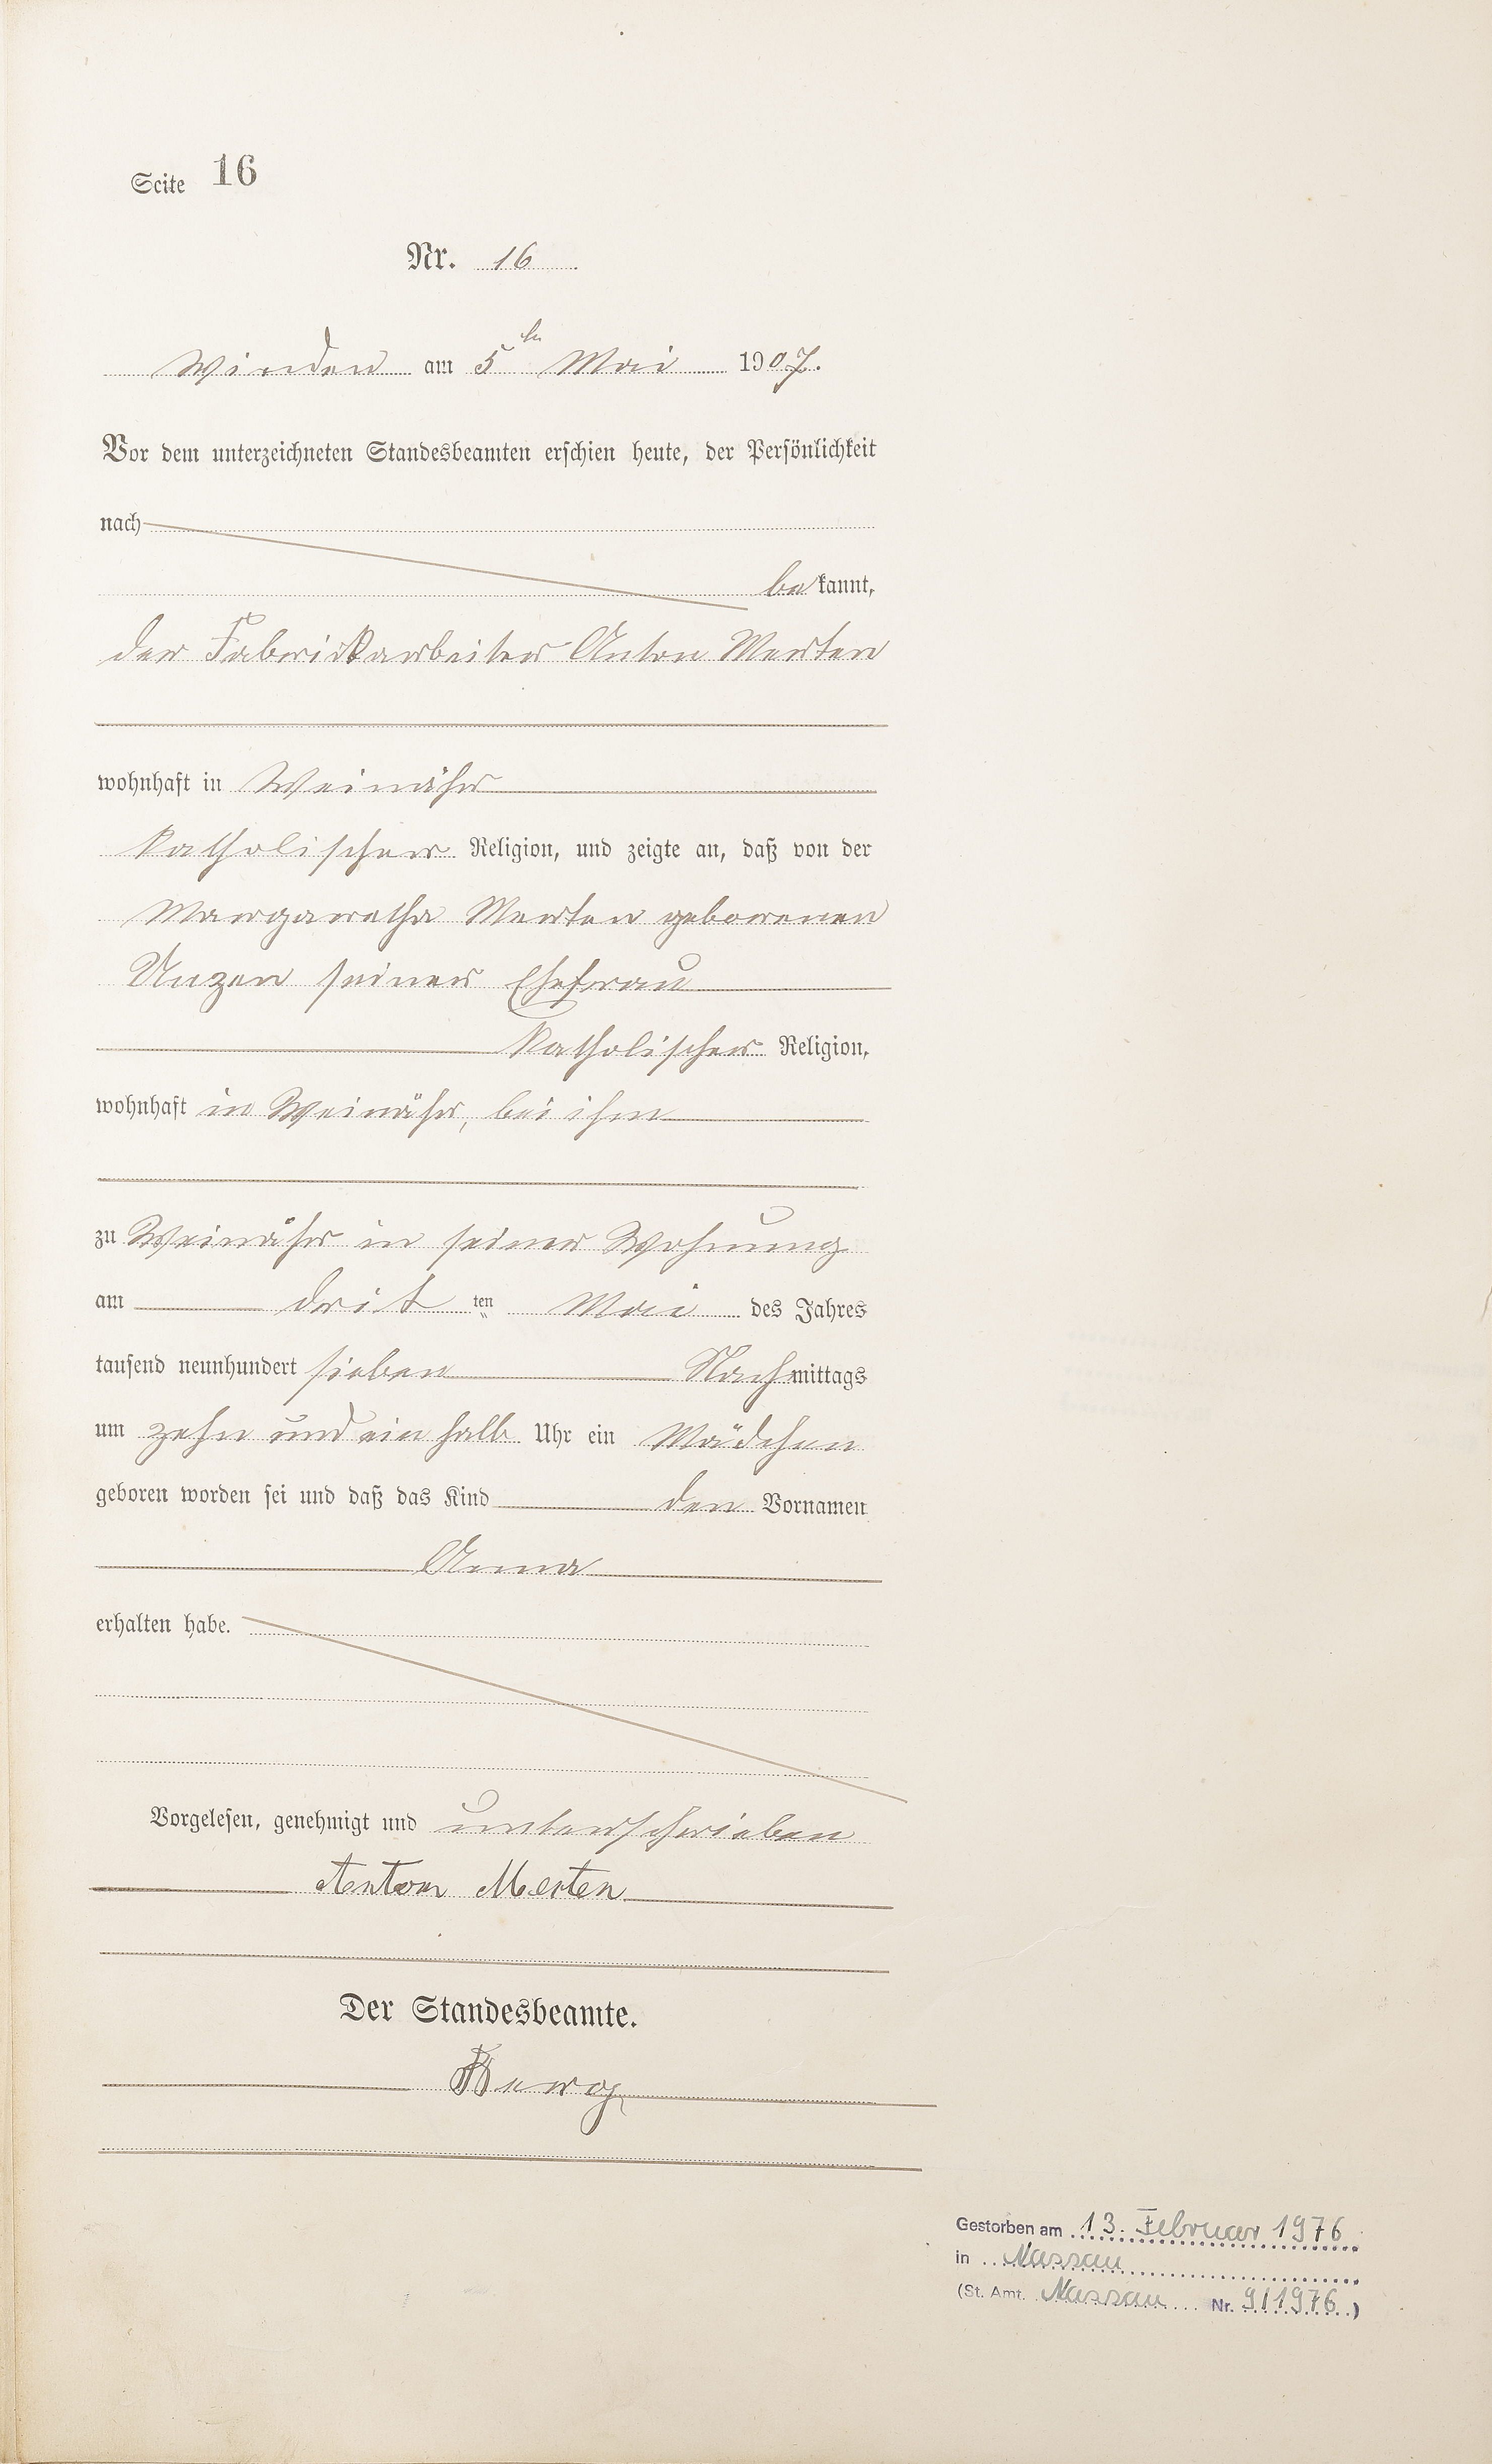 Seite 16
Nr. 16
Winden am 5ten Mai 1907.
Vor dem unterzeichneten Standesbeamten erschien heute, der Persönlichkeit
nach
bekannt,
der Fabrikarbeiter Anton Merten
wohnhaft in Weinähr
katholischer Religion, und zeigte an, daß von der
Margaretha Merten geborenen
seiner Ehefrau
katholischer Religion,
wohnhaft in Weinähr, bei ihm
zu Weinähr in seiner Wohnung
am dritten Mai des Jahres
tausend neunhundert sieben Nachmittags
um zehn und ein halb Uhr ein Mädchen
geboren worden sei und daß das Kind den Vornamen
Anna
erhalten habe.
Vorgelesen, genehmigt und unterschrieben
Anton Merten
Der Standesbeamte.
Gestorben am 13. Februar 1976
in Nassau
(St. Amt. Nassau Nr. 9/1976)